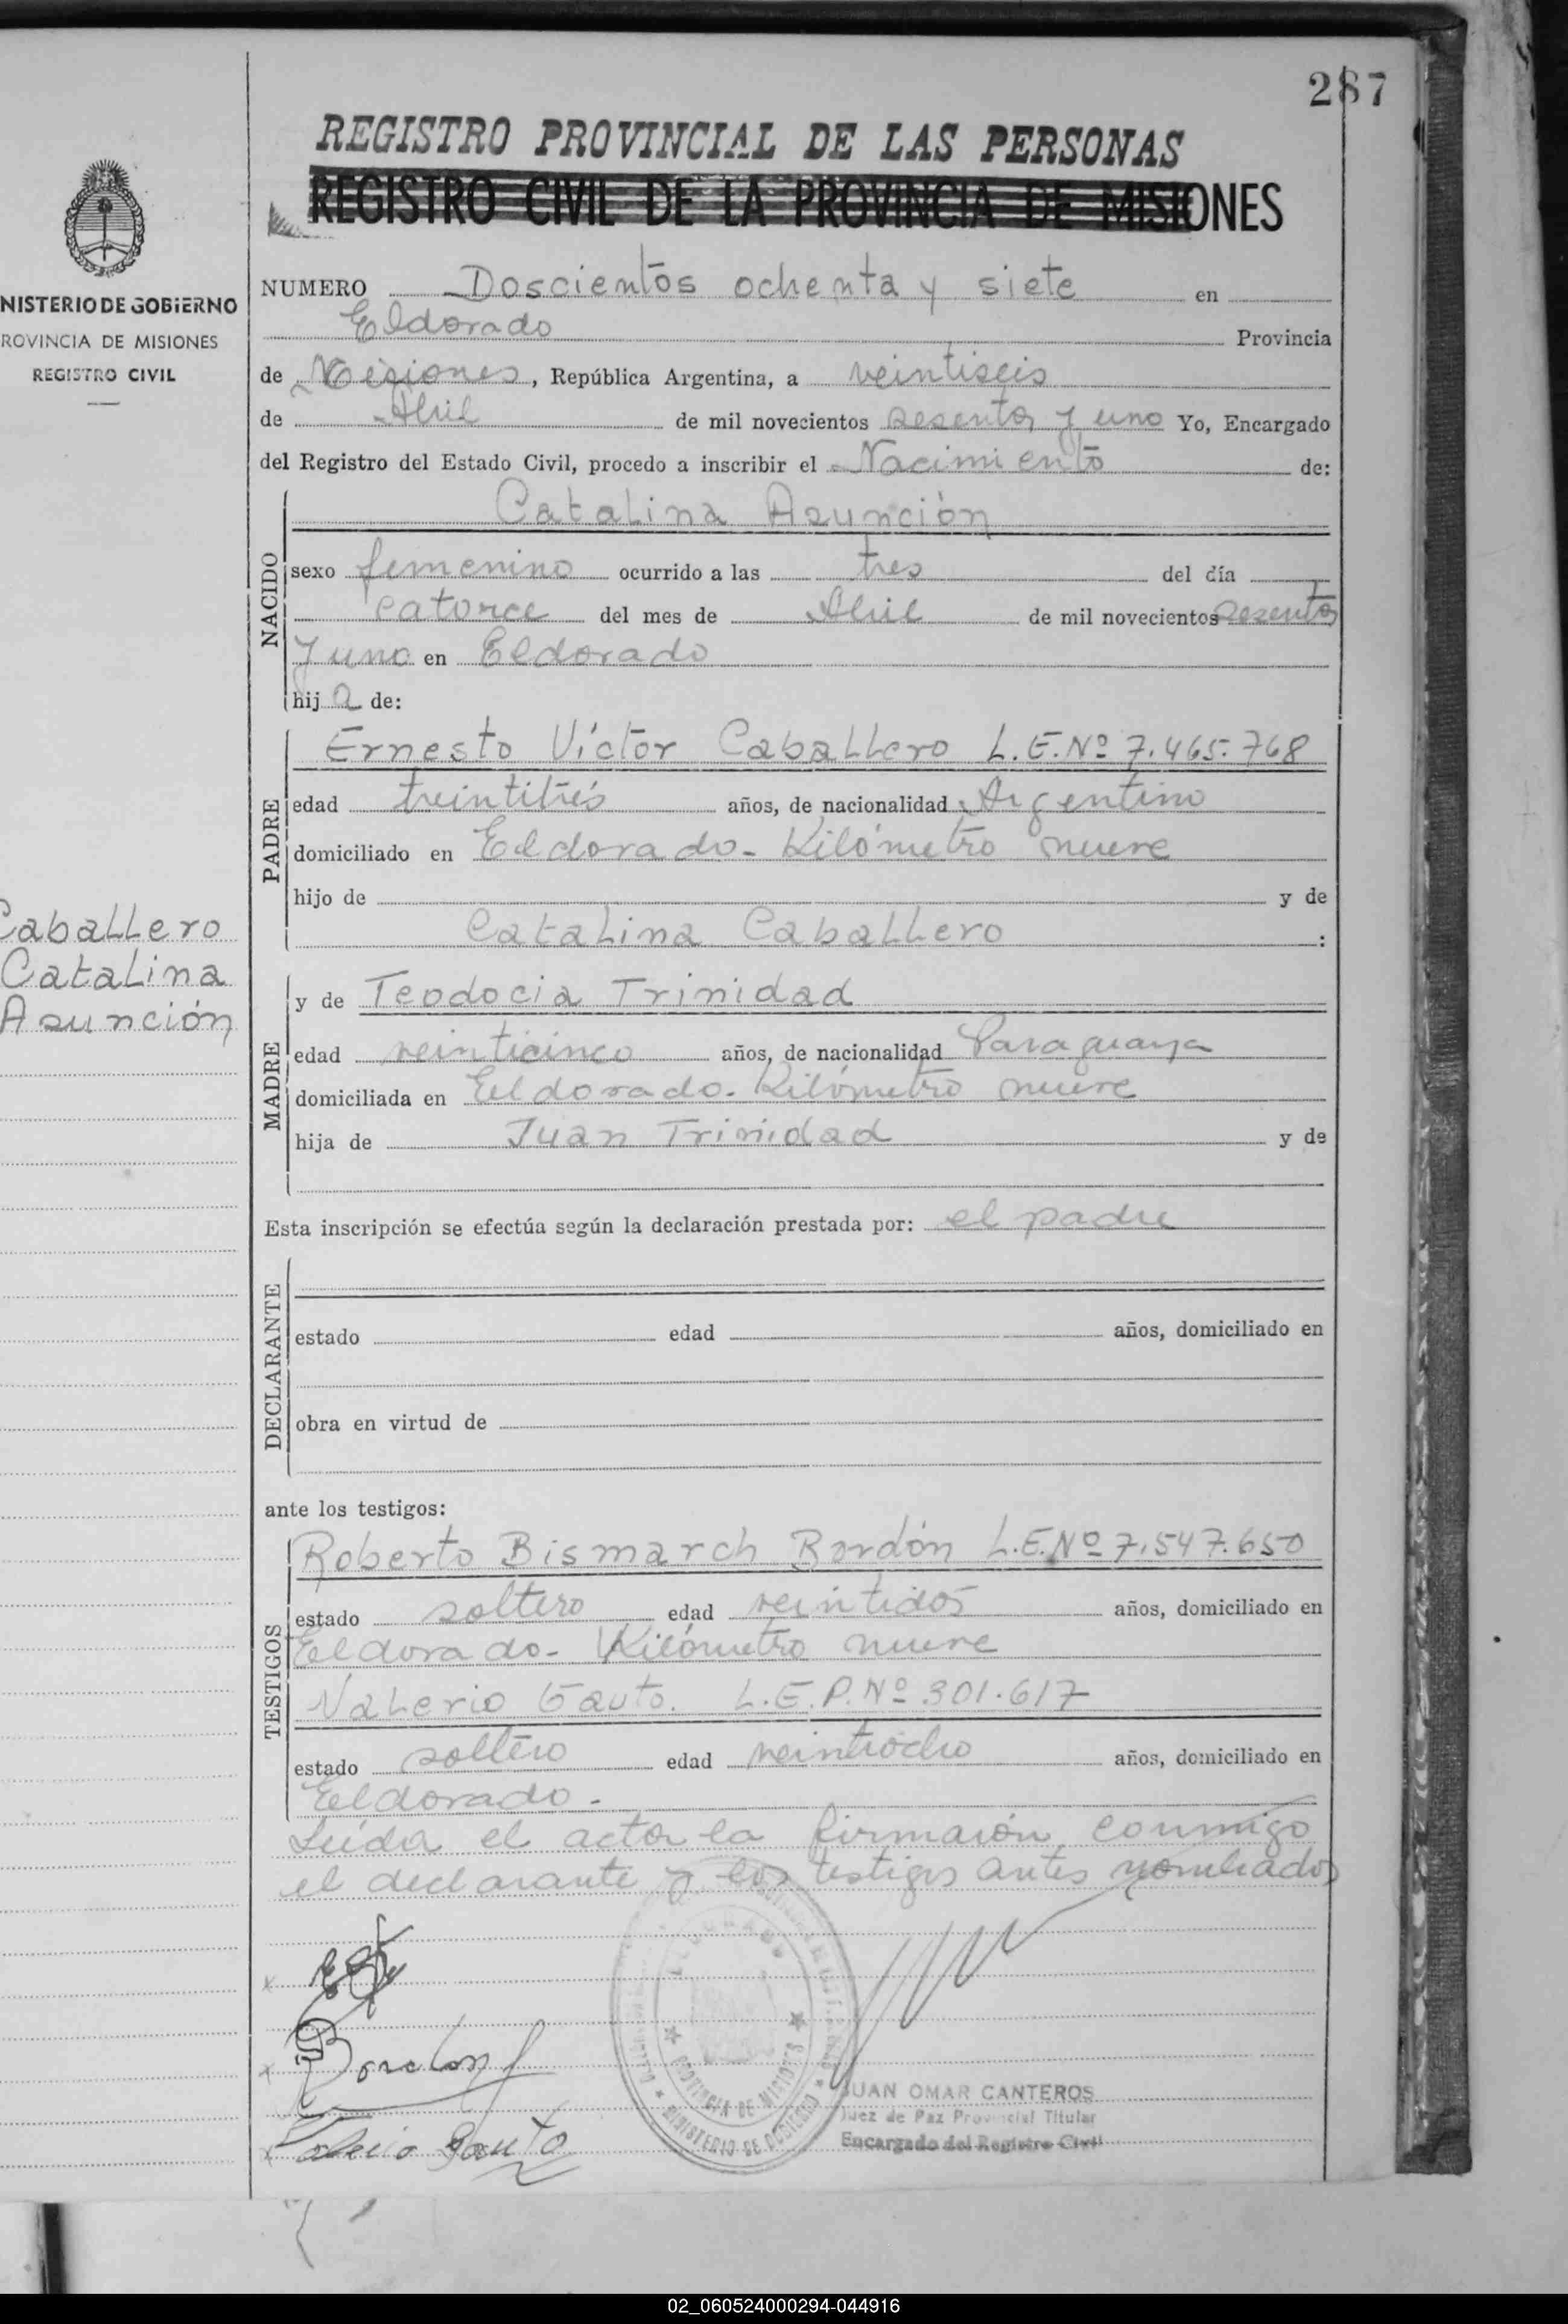 287
REGISTRO PROVINCIAL DE LAS PERSONAS
REGISTRO CIVIL DE LA PROVINCIA DE MISIONES
NISTERIO DE GOBIERNO
ROVINCIA DE MISIONES
REGISTRO CIVIL
NUMERO Doscientos ochenta y siete en
Eldorado Provincia
de Misiones, República Argentina, a veintiseis
de Abril de mil novecientos sesenta y uno Yo, Encargado
del Registro del Estado Civil, procedo a inscribir el Nacimiento de:
NACIDO
Catalina Asunción
sexo femenino ocurrido a las tres del día
catorce del mes de Abril de mil novecientos sesenta
y uno en Eldorado
hija de:
PADRE
Ernesto Víctor Caballero L.E.Nº 7.465.768
edad treintitrés años, de nacionalidad Argentino
domiciliado en Eldorado - Kilómetro nueve
hijo de y de
Catalina Caballero :
Caballero
Catalina
Asunción
MADRE
y de Teodocia Trinidad
edad veinticinco años, de nacionalidad Paraguaya
domiciliada en Eldorado - Kilómetro nueve
hija de Juan Trinidad y de
Esta inscripción se efectúa según la declaración prestada por: el padre
DECLARANTE
estado edad años, domiciliado en
obra en virtud de
ante los testigos:
TESTIGOS
Roberto Bismarch Bordón L.E.Nº 7.547.650
estado soltero edad veintidós años, domiciliado en
Eldorado - Kilómetro nueve
Valerio Gauto. L.E.P.Nº 301.617
estado soltero edad veintiocho años, domiciliado en
Eldorado -
Leída el acta la firmaron conmigo
el declarante y los testigos antes nombrados
Bordon
Valerio Gauto
ELDORADO
PROVINCIA DE MISIONES
MINISTERIO DE GOBIERNO
JUAN OMAR CANTEROS
Juez de Paz Provincial Titular
Encargado del Registro Civil
02_060524000294-044916